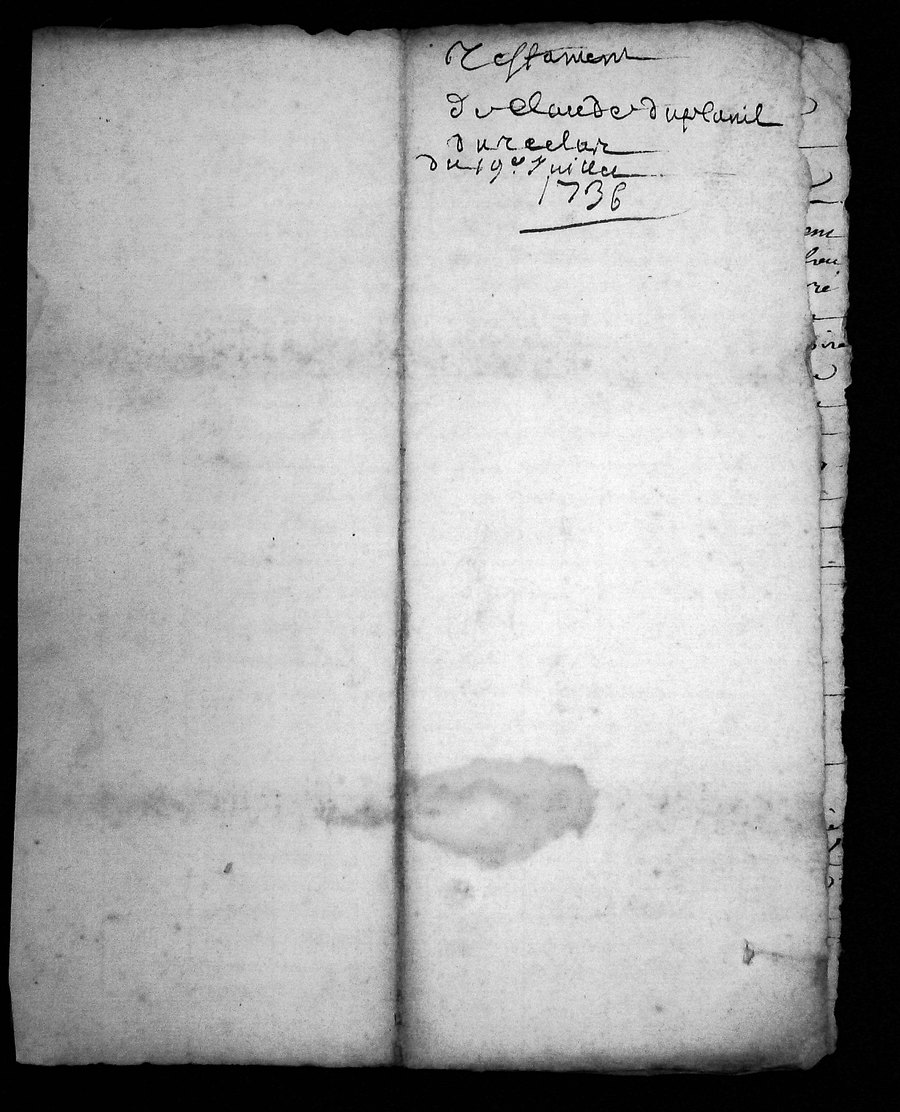 Testament
De Claude duplanil
du reclus
du 19e Juillet
1736